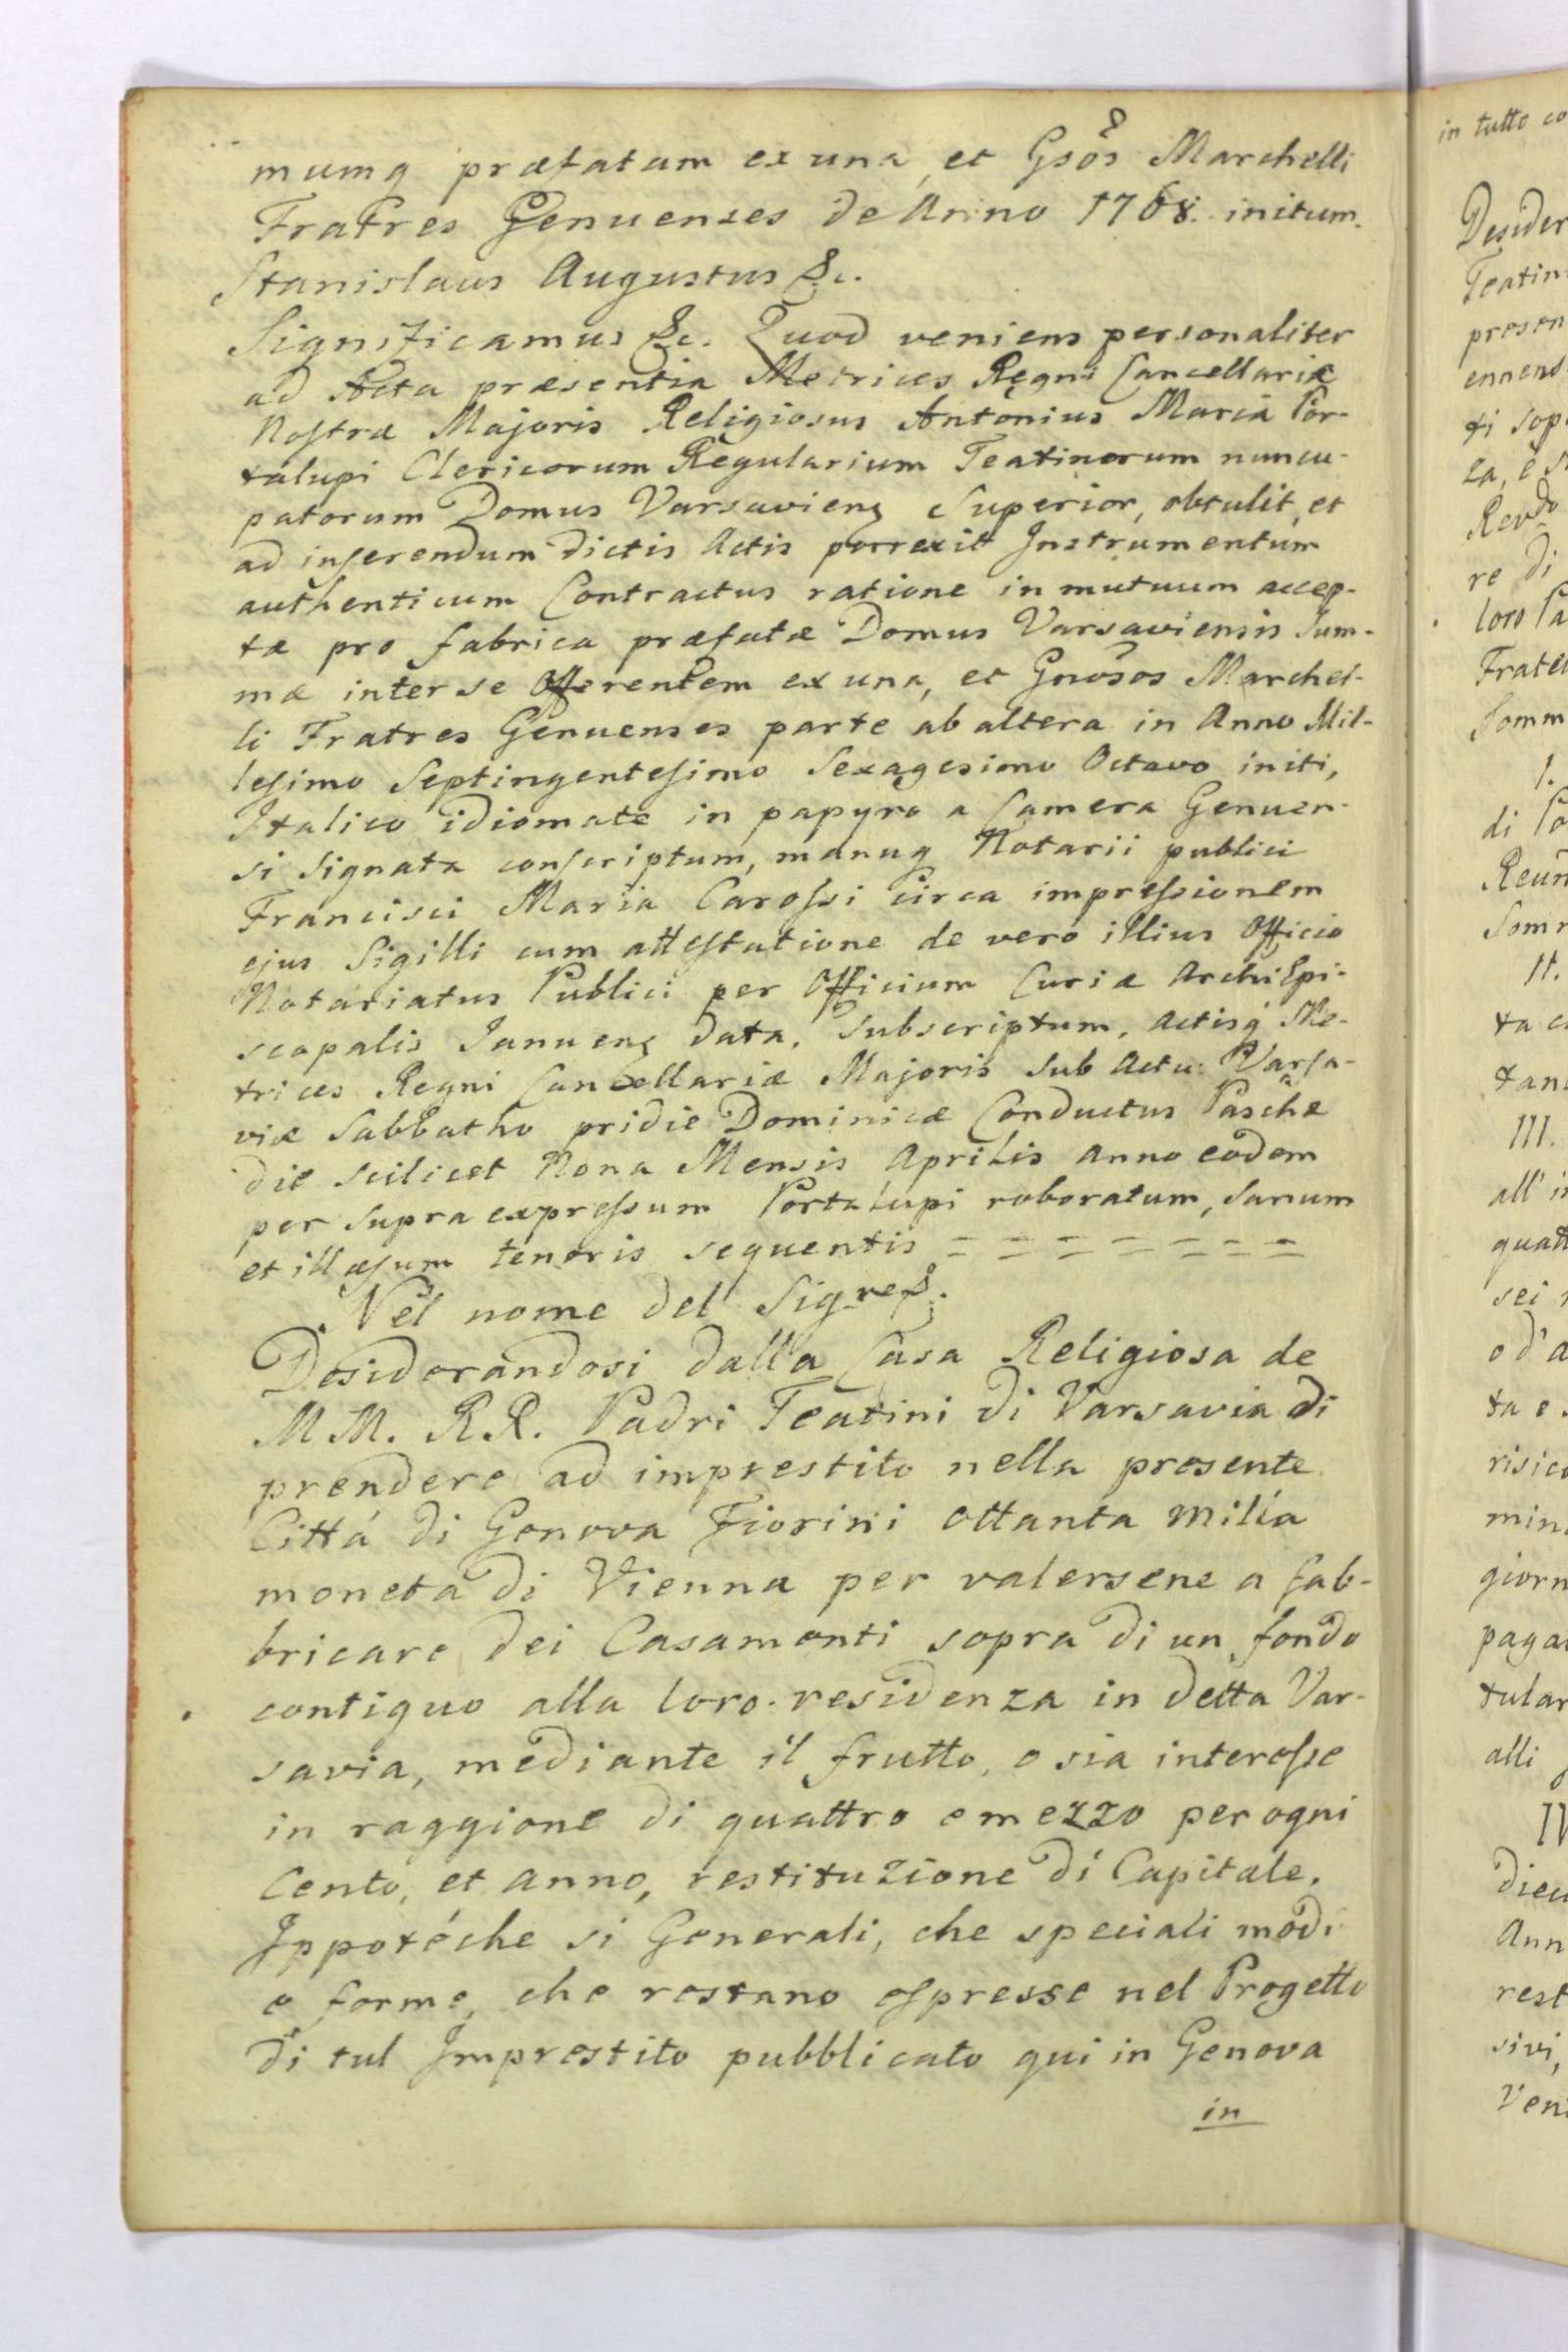 mumq præfatam ex una, et Gsos Marchelli
Fratres Genuenses de Anno 1768. initum.
Stanislaus Augustus &c.
Significamus &c. Quod veniens personaliter
ad Acta præsentia Metrices Regni Cancellariæ
Nostræ Majoris Religiosus Antonius Maria Por-
talupi Clericorum Regularium Teatinorum nuncu-
patorum Domus Varsaviens Superior, obtulit, et
ad inserendum dictis Actis porrexit Instrumentum
authenticum Contractus ratione in mutuum accep-
tæ pro fabrica præfatæ Domus Varsaviensis Sum-
mæ inter se Offerentem ex una, et Gnosos Marchel-
li Fratres Genuenses parte ab altera in Anno Mil-
lesimo Septingentesimo Sexagesimo Octavo initi,
Italico idiomate in papyro a Camera Genuen-
si Signata conscriptum, manuq Notarii publici
Francisci Maria Carossi circa impressionem
ejus Sigilli cum attestatione de vero illius Officio
Notariatus Publici per Officium Curiæ ArchiEpi-
scopalis Januens data, Subscriptum, Actisq Me-
trices Regni Cancellariæ Majoris Sub Actu Varsa-
viæ Sabbatho pridie Dominicæ Conductus Paschæ
die scilicet Nona Mensis Aprilis Anno eodem
per Supra expressum Portalupi roboratum, Sanum
et illæsum tenoris sequentis = = = = = = =
Nel nome del Sigre &.
Desiderandosi dalla Casa Religiosa de
M M. R R. Padri Teatini di Varsavia di
prendere ad imprestito nella presente
Cittá di Genova Fiorini Ottanta Milia
moneta di Vienna per valersene a fab-
bricare dei Casamenti sopra di un fondo
contiguo alla loro residenza in detta Var-
savia, mediante il frutto, o sia interesse
in raggione di quattro e mezzo per ogni
Cento, et anno, restituzione di Capitale,
Ippotéche si Generali, che speciali modi
e forme, che restano espresse nel Progetto
di tal Imprestito pubblicato qui in Genova
in
in tutto co
Desider
Teatin
presen
ennens
ti sop
za, e s
Rendo
re di
loro Pa
Frate
Somm
I.
di Pa
Reun
Som
II.
ta c
tan
III.
all' i
quatt
sei
o d'a
ta e
risico
min
giorn
paga
tular
alli
IV
dieci
Ann
rest
sivi,
Ven